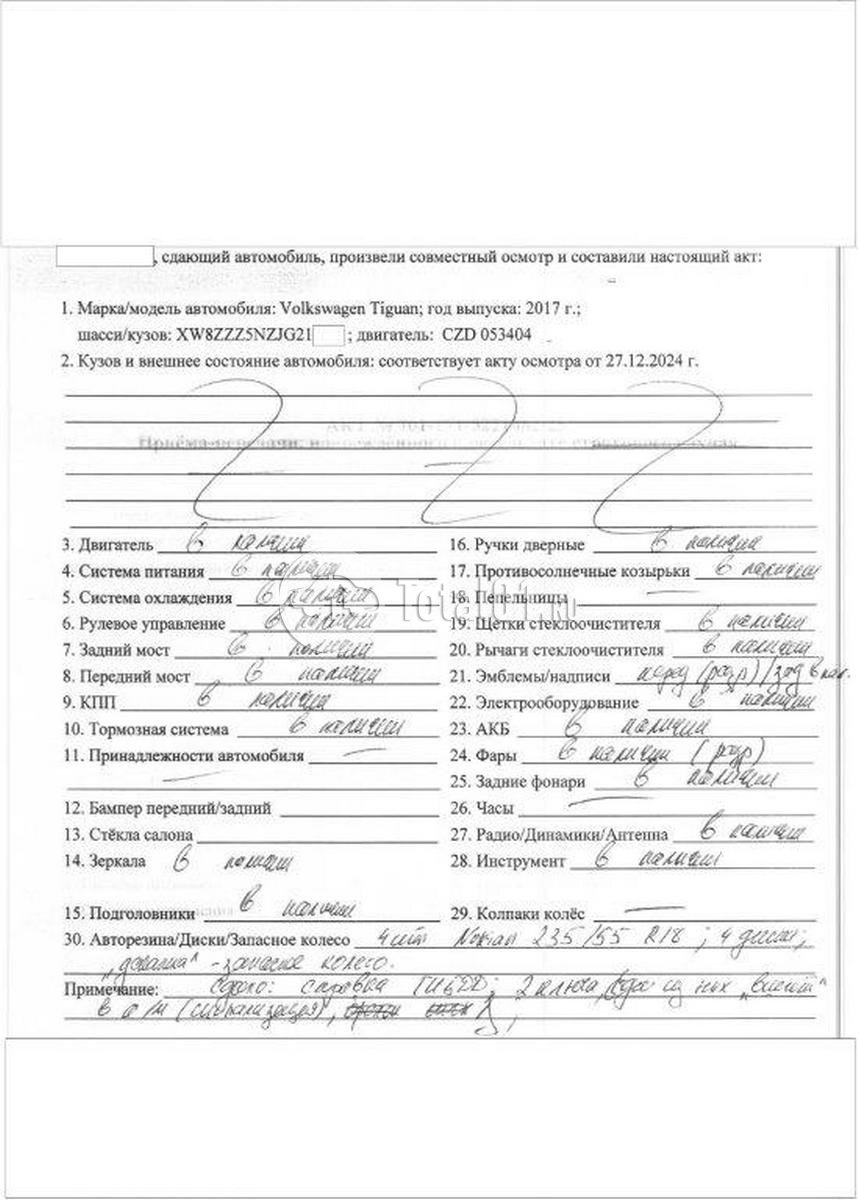 , сдающий автомобиль, произвели совместный осмотр и составили настоящий акт:
1. Марка/модель автомобиля: Volkswagen Tiguan; год выпуска: 2017 г.;
шасси/кузов: XW8ZZZ5NZJG21 ; двигатель: CZD 053404
2. Кузов и внешнее состояние автомобиля: соответствует акту осмотра от 27.12.2024 г.
3. Двигатель в наличии
4. Система питания в наличии
5. Система охлаждения в наличии
6. Рулевое управление в наличии
7. Задний мост в наличии
8. Передний мост в наличии
9. КПП в наличии
10. Тормозная система в наличии
11. Принадлежности автомобиля —
12. Бампер передний/задний
13. Стёкла салона
14. Зеркала в наличии
15. Подголовники в наличии
16. Ручки дверные в наличии
17. Противосолнечные козырьки в наличии
18. Пепельницы —
19. Щетки стеклоочистителя в наличии
20. Рычаги стеклоочистителя в наличии
21. Эмблемы/надписи перед (разр)/зад в нал.
22. Электрооборудование в наличии
23. АКБ в наличии
24. Фары в наличии (разр)
25. Задние фонари в наличии
26. Часы —
27. Радио/Динамики/Антенна в наличии
28. Инструмент в наличии
29. Колпаки колёс —
30. Авторезина/Диски/Запасное колесо 4 шт Nokian 235/55 R18; 4 диска;
- запасное колесо.
Примечание: Сдано: справка ГИБДД; 2 ключа, из них
в а/м (сигнализация),
Total01.ru